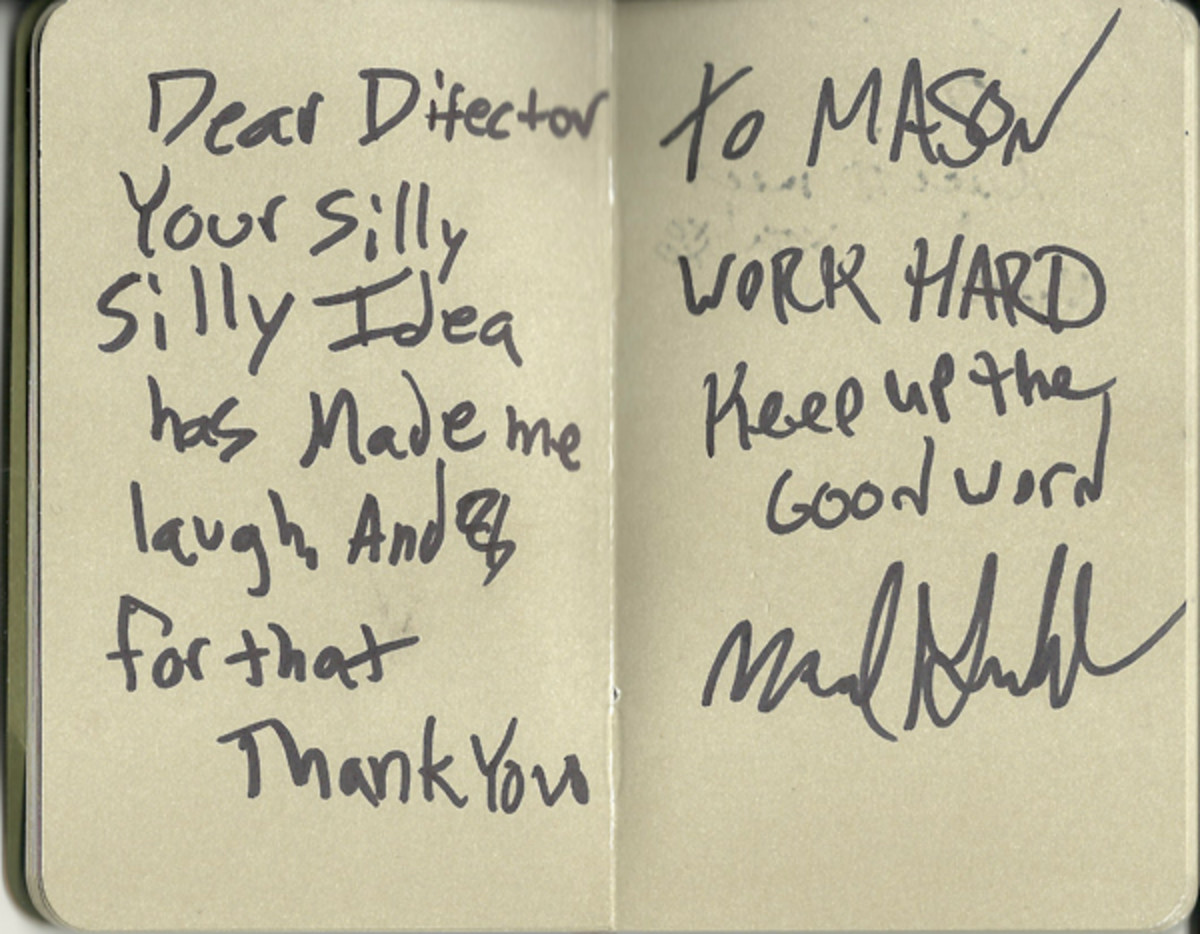 Dear Director
Your Silly
Silly Idea
has Made me
laugh, And
for that
Thank You
To MASON
WORK HARD
Keep up the
Good work